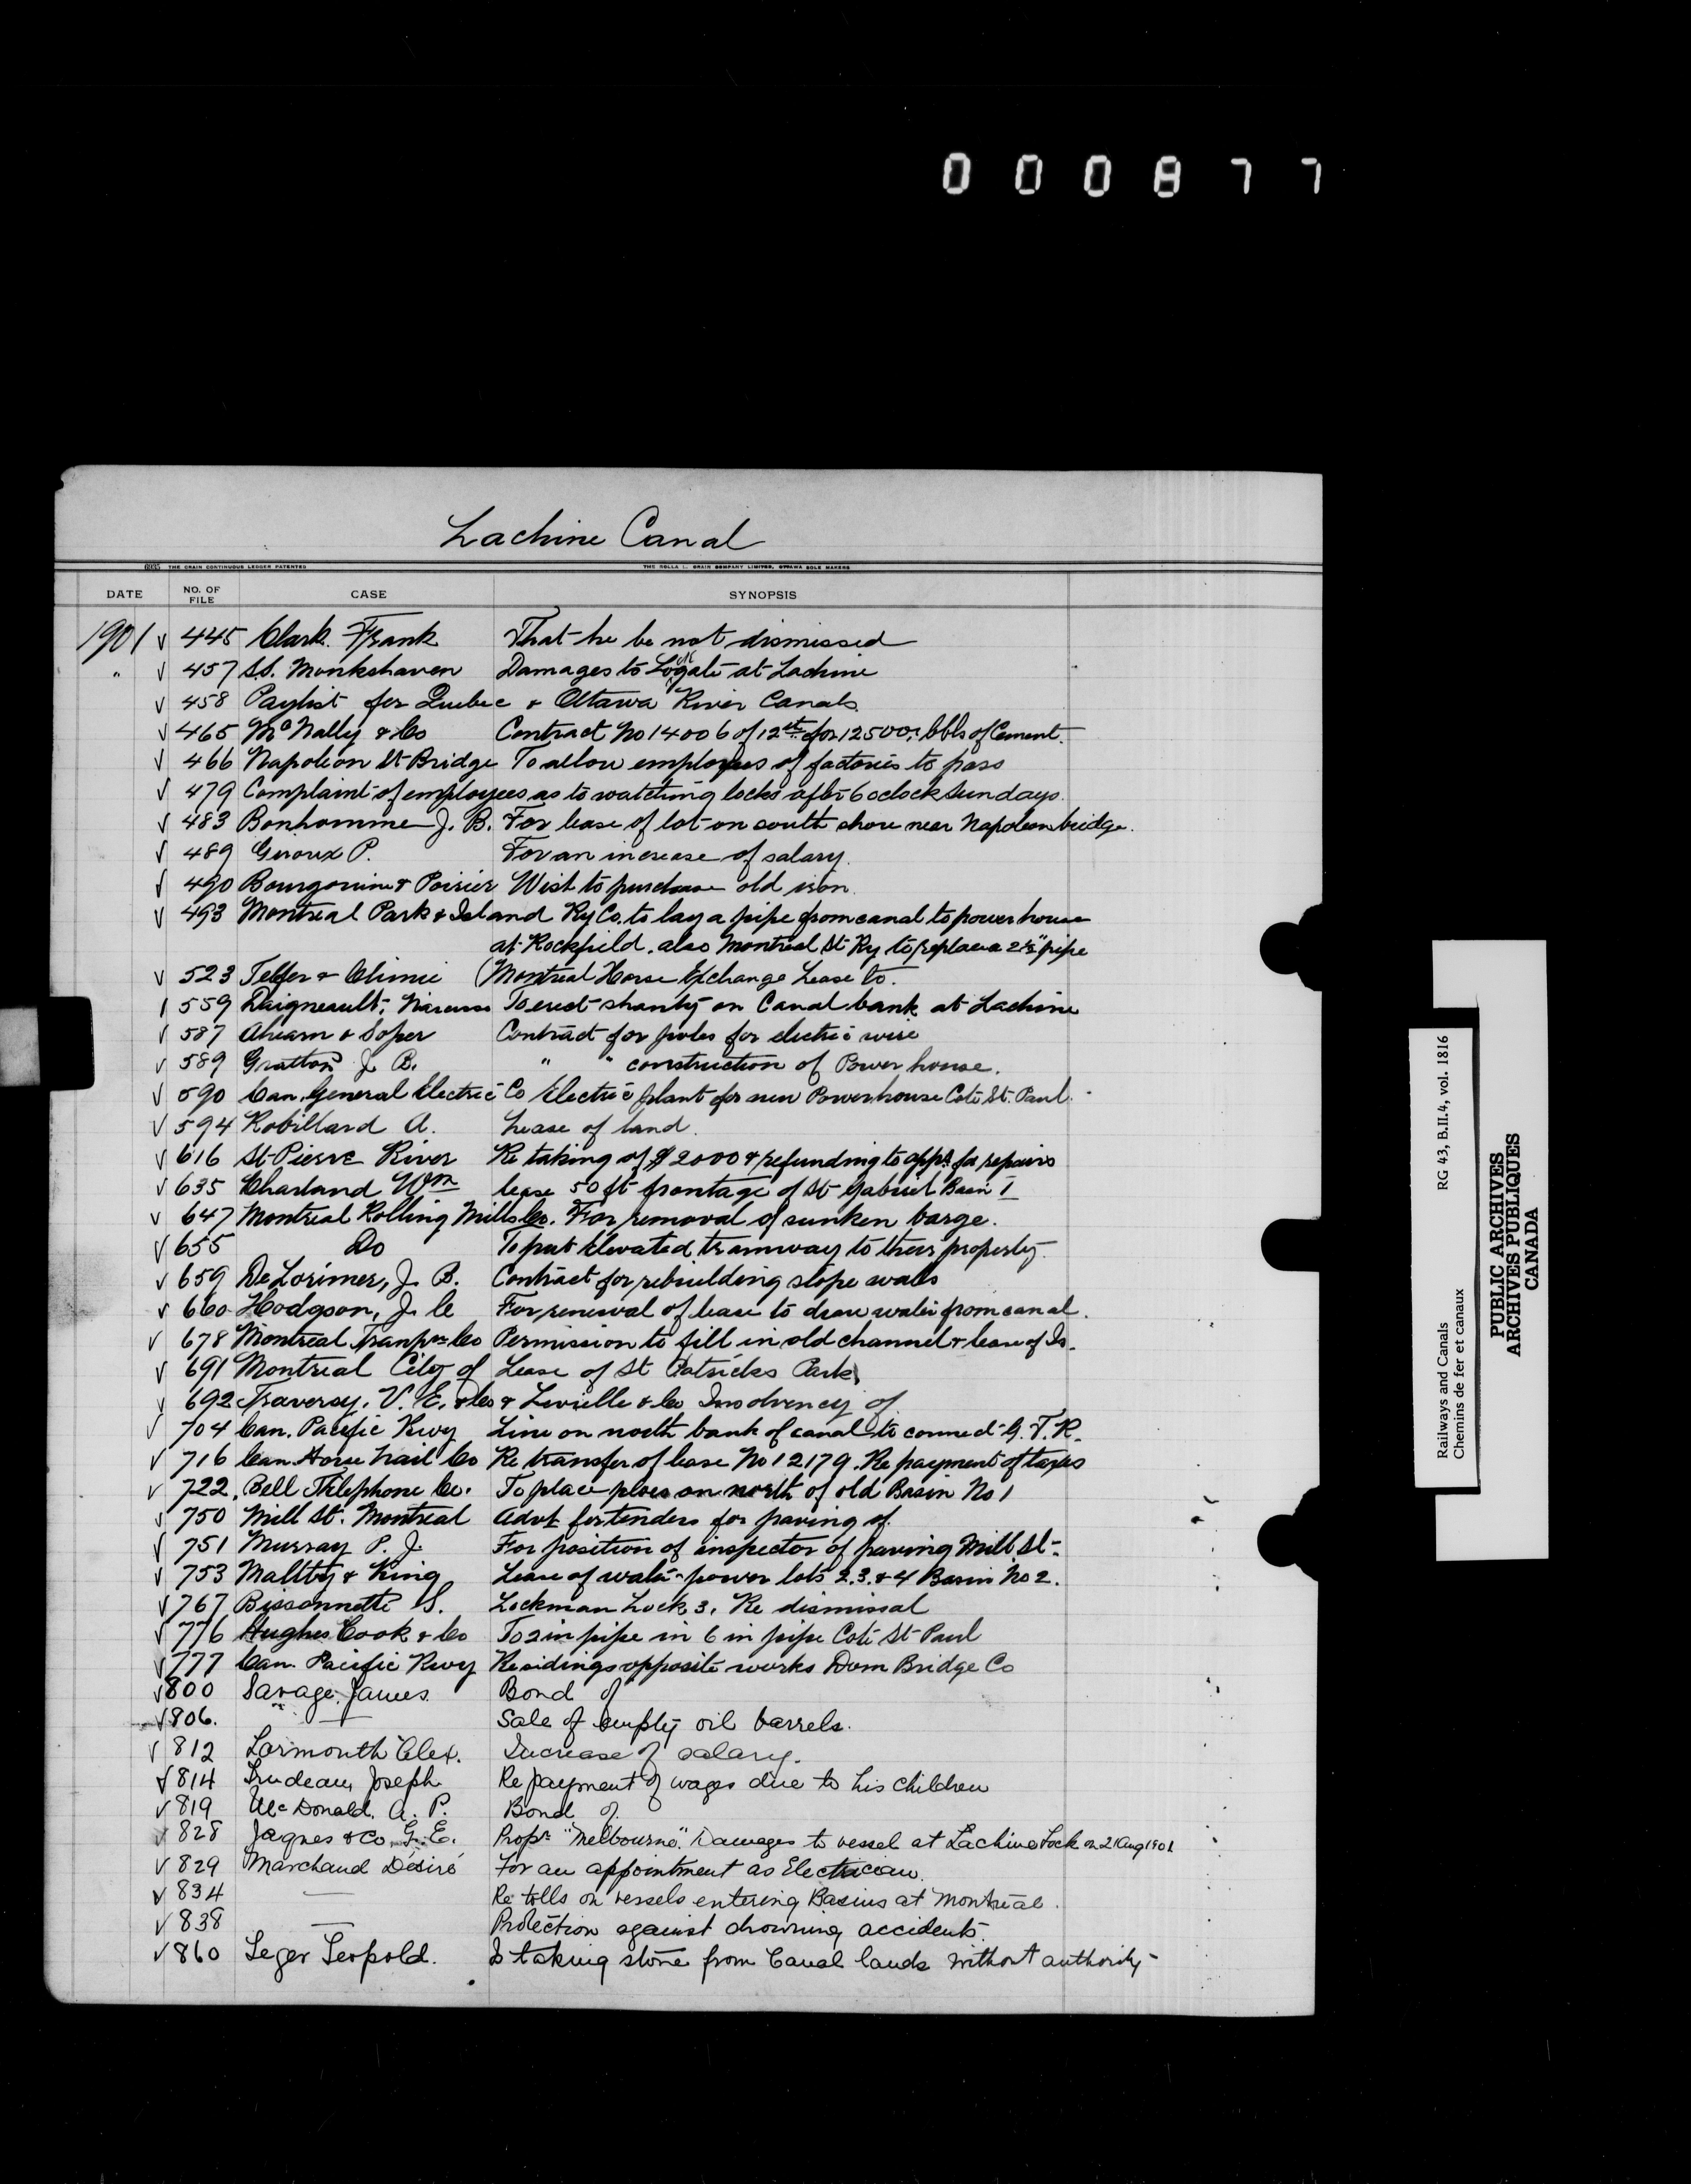 000877
Lachine Canal
6935 THE CRAIN CONTINUOUS LEDGER PATENTED THE ROLLA L. CRAIN COMPANY LIMITED, OTTAWA SOLE MAKERS
DATE NO. OF FILE CASE SYNOPSIS
1901 √ 445 Clark Frank That he be not dismissed
" √ 457 S.S. Monkshaven Damages to Lock gate at Lachine
√ 458 Paylist for Quebec & Ottawa River Canals.
√ 465 McNally & Co Contract No 14006 of 12 for 12500 bbls of Cement.
√ 466 Napoleon St Bridge To allow employees of factories to pass
√ 479 Complaint of employees as to watching locks after 6 oclock Sundays.
√ 483 Bonhomme J. B. For lease of lot on south shore near Napoleon bridge.
√ 489 Giroux P. For an increase of salary.
√ 490 Bourgouin & Poirier Wish to purchase old iron.
√ 493 Montreal Park & Island Ry Co. to lay a pipe from canal to power house
at Rockfield. also Montreal St Ry to replace a 2½" pipe
√ 523 Telfer & Climie (Montreal Horse Exchange Lease to.
√ 559 Daigneault, Narcisse To erect shanty on Canal bank at Lachine
√ 587 Ahearn & Soper Contract for poles for electric wire
√ 589 Gratton J. B. " " construction of Power house.
√ 590 Can. General Electric Co Electric plant for new Powerhouse Cote St. Paul.
√ 594 Robillard A. Lease of land.
√ 616 St Pierre River Re taking of $2000 & refunding to appn for repairs
√ 635 Charland Wm lease 50 ft frontage of St Gabriel Basin 1
√ 647 Montreal Rolling Mills Co. For removal of sunken barge.
√ 655 Do To put Elevated tramway to their property.
√ 659 DeLorimer, J. B. Contract for rebuilding slope walls
√ 660 Hodgson, J. C For renewal of lease to draw water from canal.
√ 678 Montreal Tranpn Co Permission to fill in old channel & lease of Is.
√ 691 Montreal City of Lease of St Patricks Park
√ 692 Traversy, V. E. & Co & Leveille & Co Insolvency of
√ 704 Can. Pacific Rwy Line on north bank of canal to connect G. T. R.
√ 716 Can Horse Nail Co Re transfer of lease No 12179. Re payment of taxes
√ 722. Bell Telephone Co. To place poles on north of old Basin No 1
√ 750 Mill St. Montreal Advt for tenders for paving of.
√ 751 Murray P. J. For position of inspector of paving Mill St.
√ 753 Maltby & King Lease of water-power lots 2.3.& 4 Basin No 2.
√ 767 Bissonnette S. Lockman Lock 3. Re dismissal
√ 776 Hughes Cook & Co To 2 in pipe in 6 in pipe Coté St Paul
√ 777 Can. Pacific Rwy Re sidings opposite works Dom Bridge Co
√ 800 Savage, James. Bond of
√ 806. — Sale of empty oil barrels.
√ 812 Larmouth Alex. Increase of salary.
√ 814 Trudeau, Joseph Re payment of wages due to his children
√ 819 McDonald. A. P. Bond of.
√ 828 Jaques & Co. G. E. Props "Melbourne". Damages to vessel at Lachine Lock on 21 Aug 1901.
√ 829 Marchand Désiré For an appointment as Electrician.
√ 834 — Re tolls on vessels entering Basins at Montreal.
√ 838 — Protection against drowning accidents.
√ 860 Leger Leopold. Is taking stone from Canal lands without authority
Railways and Canals RG 43, B.II.4, vol. 1816
Chemins de fer et canaux
PUBLIC ARCHIVES
ARCHIVES PUBLIQUES
CANADA